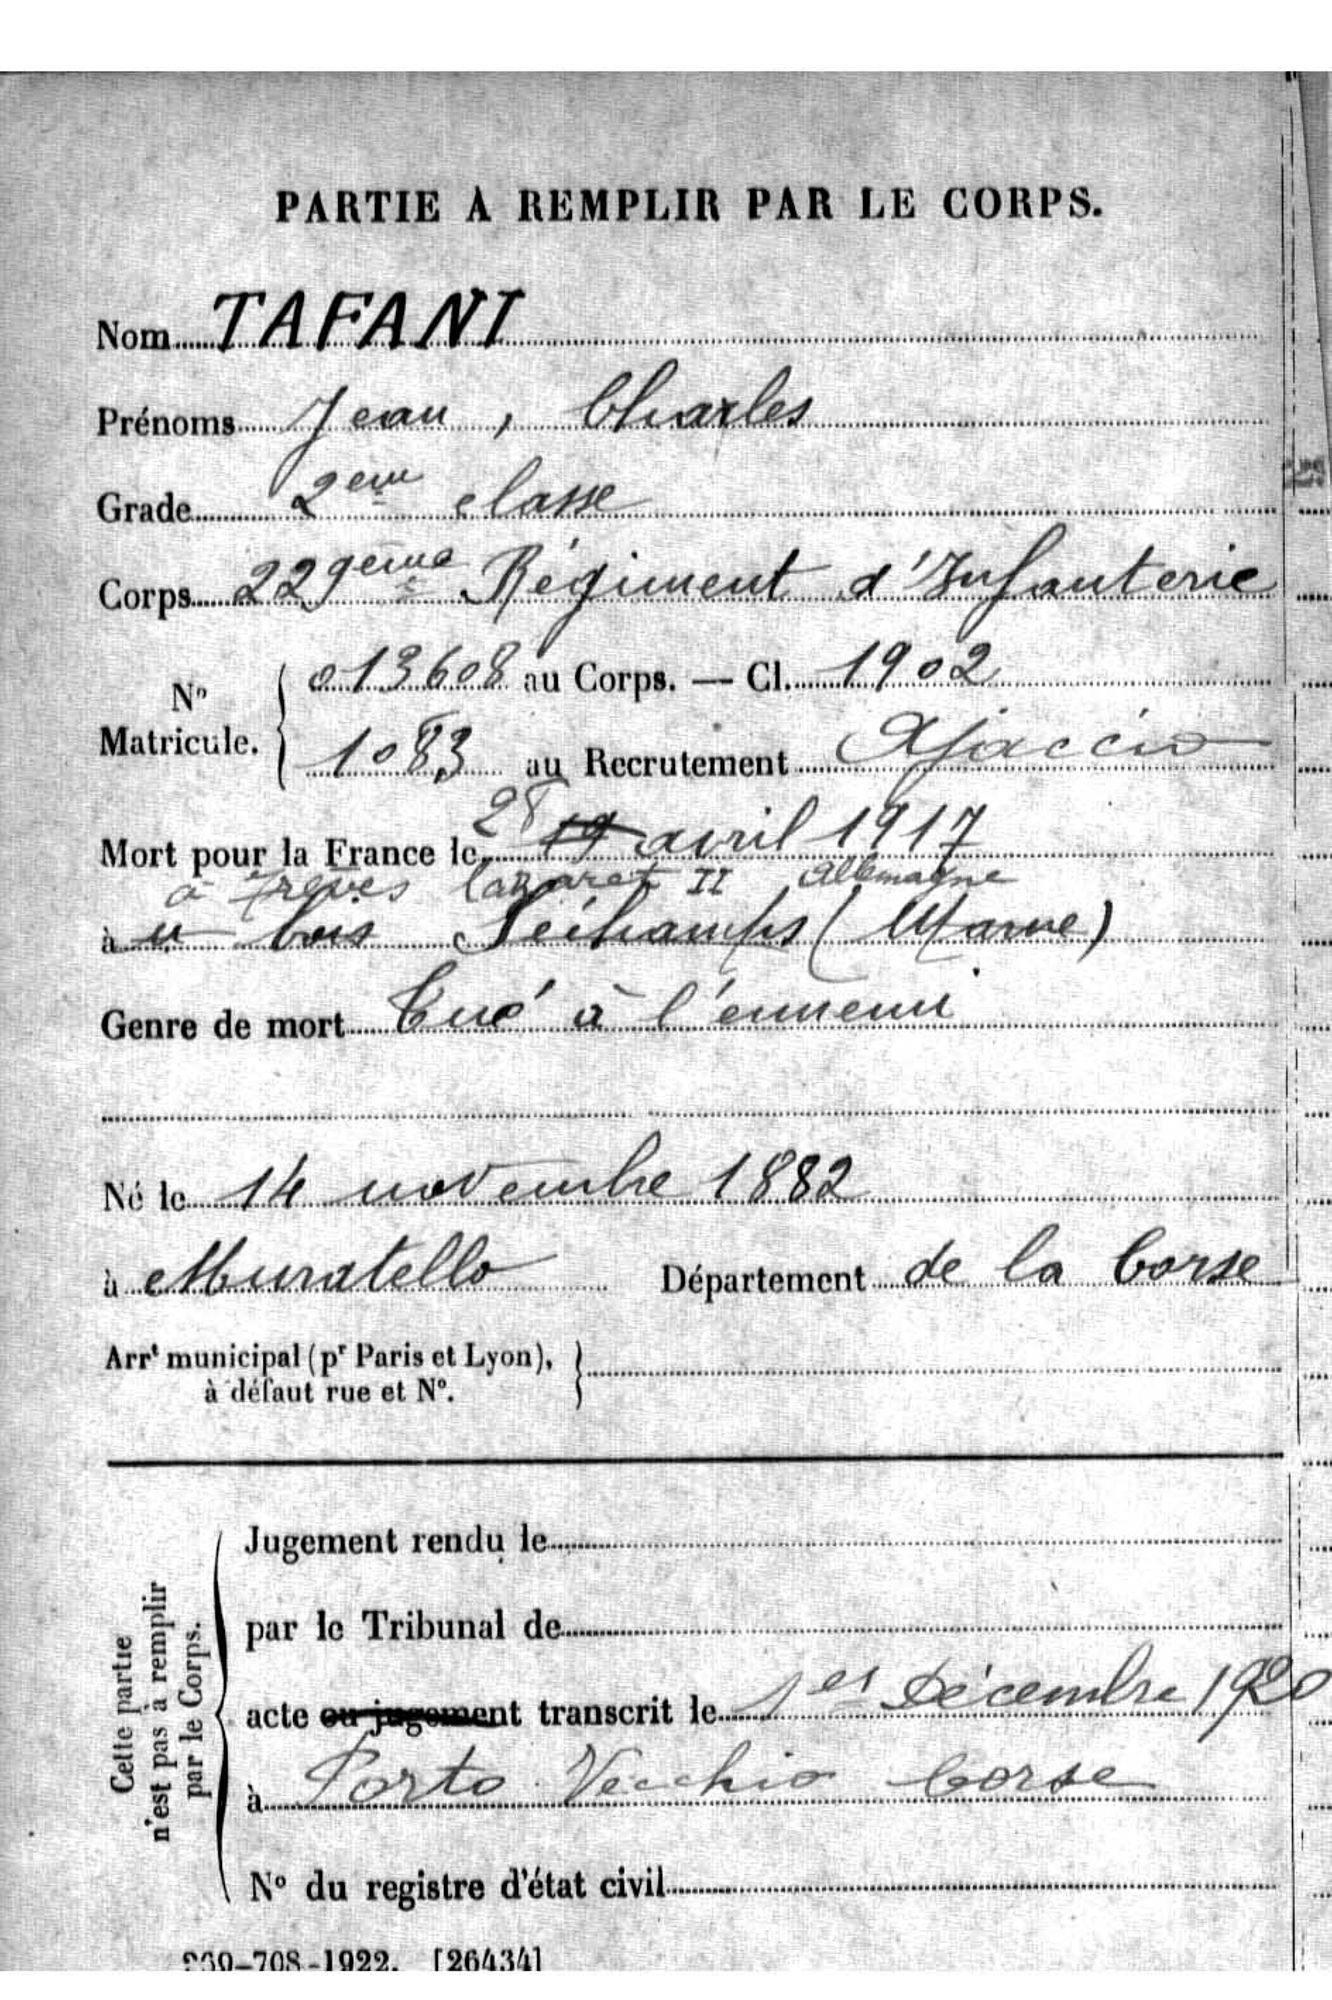 PARTIE A REMPLIR PAR LE CORPS.
Nom TAFANI
Prénoms Jean, Charles
Grade 2ème classe
Corps 229ème Régiment d'Infanterie
No Matricule. 013608 au Corps. — Cl. 1902
1083 au Recrutement Ajaccio
Mort pour la France le 28 19 avril 1917
à Trèves lazaret II Allemagne
à bois Séchamps (Marne)
Genre de mort Tué à l'ennemi
Né le 14 novembre 1882
à Muratello Département de la Corse
Arrt municipal (pr Paris et Lyon),
à défaut rue et No.
Cette partie
n'est pas à remplir
par le Corps.
Jugement rendu le
par le Tribunal de
acte ou jugement transcrit le 1er Décembre 1920
à Porto Vecchio Corse
No du registre d'état civil
-708-1922. [26434]